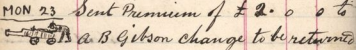 MON 23 Sent Premium of £ 2. 0 0 to
A. B. Gibson change to be returned